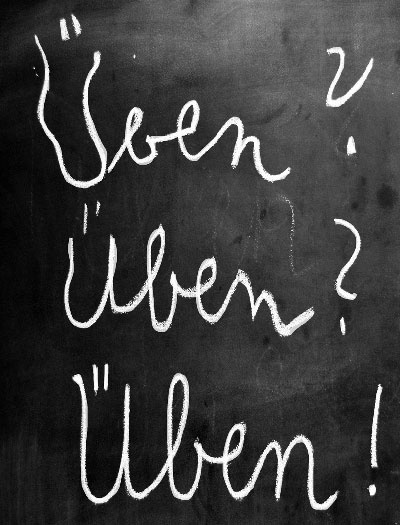 Üben ?
Üben ?
Üben !